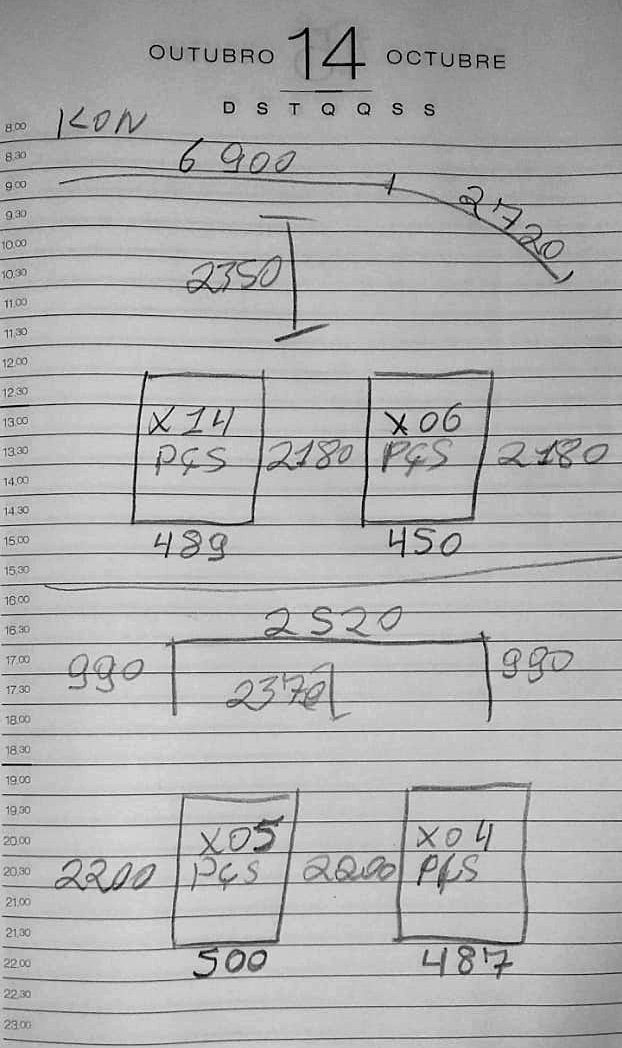 OUTUBRO 14 OCTUBRE
D S T Q Q S S
8.00 KON
8.30 6 900
9.00 2720
9.30
10.00
10.30 2350
11.00
11.30
12.00
12.30
13.00 X14 X06
13.30 PÇS 2180 PÇS 2180
14.00
14.30
15.00 489 450
15.30
16.00
16.30 2520
17.00 990 990
17.30 2370
18.00
18.30
19.00
19.30
20.00 X05 X04
20.30 2200 PÇS 2200 PÇS
21.00
21.30
22.00 500 487
22.30
23.00